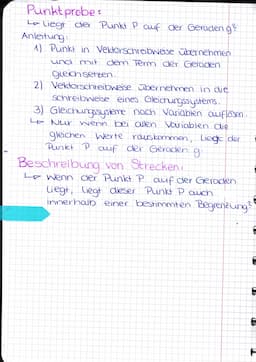 Punktprobe:
↳ Liegt der Punkt P auf der Geraden g?
Anleitung:
1) Punkt in Vektorschreibweise übernehmen
und mit dem Term der Geraden
gleichsetzen.
2) Vektorschreibweise übernehmen in die
schreibweise eines Gleichungssystems.
3) Gleichungssysteme nach Variablen auflösen.
↳ Nur wenn bei allen Variablen die
gleichen Werte rauskommen, liegt der
Punkt P auf der Geraden g.
Beschreibung von Strecken:
↳ Wenn der Punkt P auf der Geraden
liegt, liegt dieser Punkt P auch
innerhalb einer bestimmten Begrenzung?